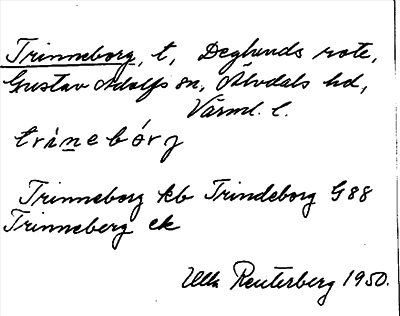 Trinneborg, t, Deglunds rote,
Gustav Adolfs sn, Älvdals hd,
Värml. l.
trìnebórg
Trinneborg kb Trindeborg G88
Trinneberg ek
Ulla Reuterberg 1950.